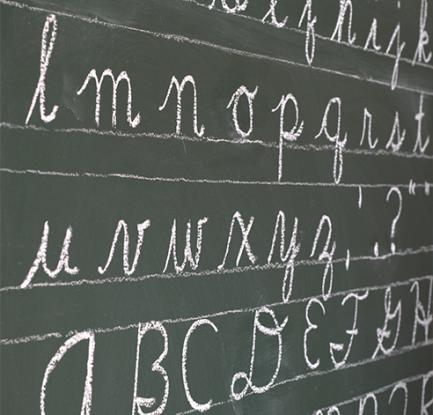 g h i j k
l m n o p q r s t
u v w x y z , . ? " "
A B C D E F G H